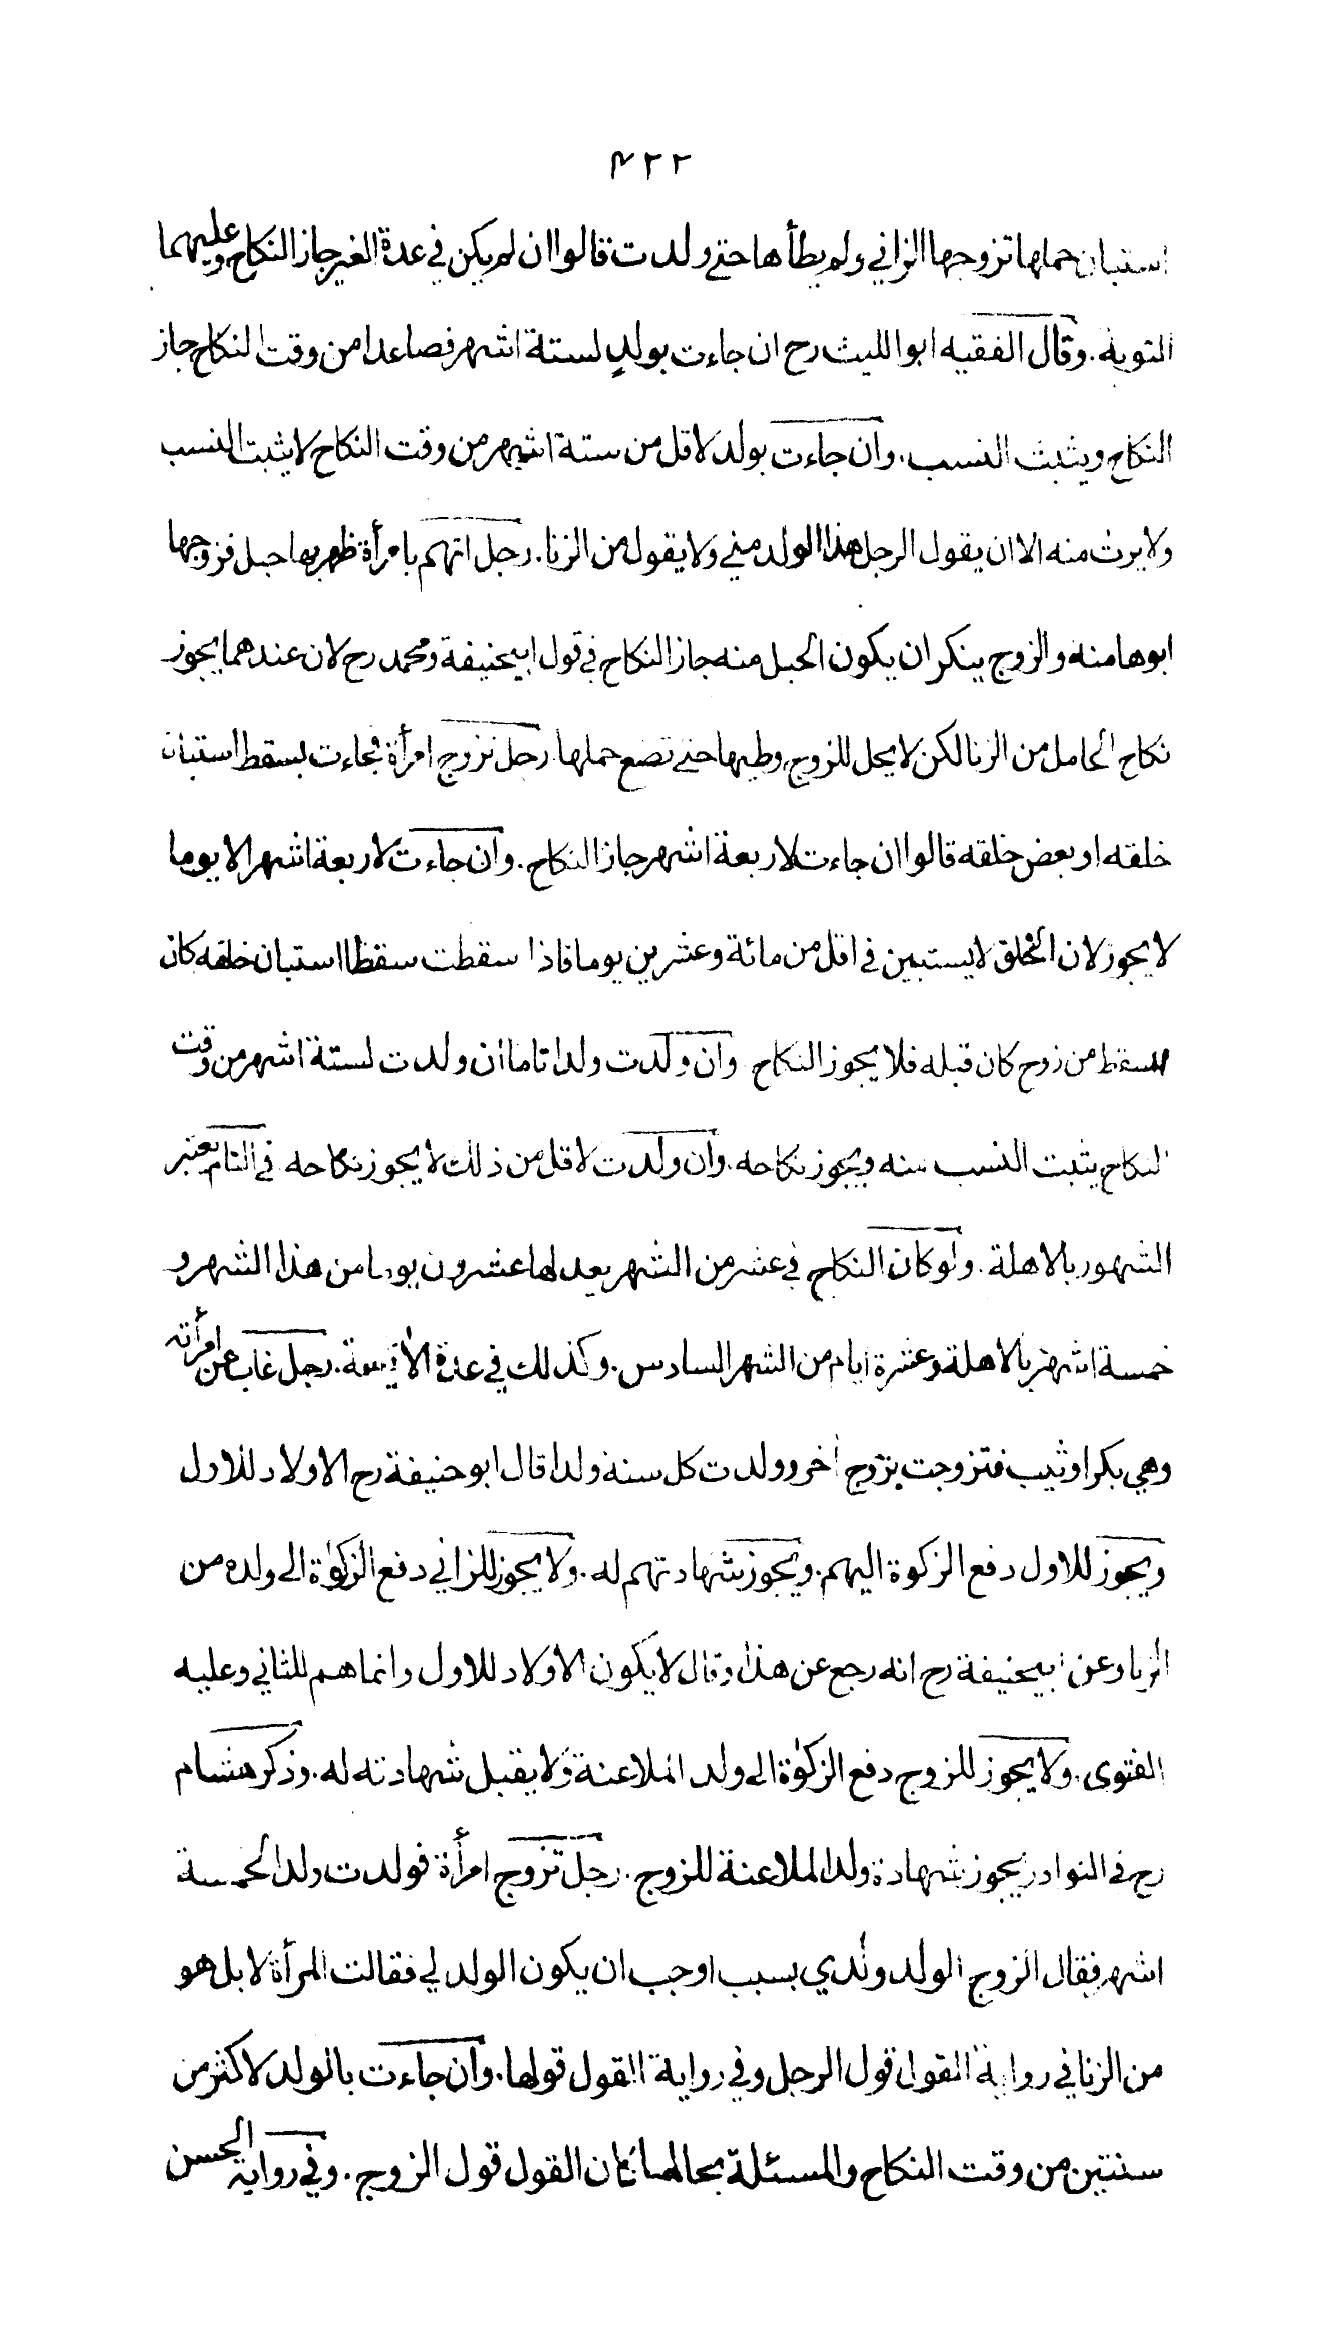 ۴۲۲
استبان حملها تزوجها الزاني ولم يطأها حتى ولدت قالوا ان لم يكن في عدة الغير جاز النكاح وعليهما
التوبة. وقال الفقيه ابو الليث رح ان جاءت بولدٍ لستة اشهر فصاعدا من وقت النكاح جاز
النكاح ويثبت النسب. وان جاءت بولد لاقل من ستة اشهر من وقت النكاح لا يثبت النسب
ولا يرث منه الا ان يقول الرجل هذا الولد مني ولا يقول من الزنا. رجل اتهم بامرأة ظهر بها حبل فزوجها
ابوها منه والزوج ينكر ان يكون الحبل منه جاز النكاح في قول ابيحنيفة ومحمد رح لان عندهما يجوز
نكاح الحامل من الزنا لكن لا يحل للزوج وطيها حتى تضع حملها. رجل تزوج امرأة فجاءت بسقط استبان
خلقه او بعض خلقه قالوا ان جاءت لاربعة اشهر جاز النكاح. وان جاءت لاربعة اشهر الا يوما
لا يجوز لان الخلق لا يستبين في اقل من مائة وعشرين يوما فاذا سقطت سقطا استبان خلقه كان
السقط من زوج كان قبله فلا يجوز النكاح وان ولدت ولدا تاما ان ولدت لستة اشهر من وقت
النكاح يثبت النسب منه ويجوز نكاحه. وان ولدت لاقل من ذلك لا يجوز نكاحه في التام يعتبر
الشهور بالاهلة. ولو كان النكاح في عشر من الشهر يعد لها عشرون يوما من هذا الشهر و
خمسة اشهر بالاهلة وعشرة ايام من الشهر السادس. وكذلك في عدة الآيسة. رجل غاب عن امرأته
وهي بكر او ثيب فتزوجت بزوج أخر وولدت كل سنة ولدا قال ابو حنيفة رح الاولاد للاول
ويجوز للاول دفع الزكوة اليهم. ويجوز شهادتهم له. ولا يجوز للزاني دفع الزكوٰة الى ولده من
الزنا وعن ابيحنيفة رح انه رجع عن هذا وقال لا يكون الاولاد للاول وانما هم للثاني وعليه
الفتوى. ولا يجوز للزوج دفع الزكوٰة الى ولد الملاعنة ولا يقبل شهادته له. وذكر هشام
رح في النوادر يجوز شهادة ولد الملاعنة للزوج. رجل تزوج امرأة فولدت ولدا لخمسة
اشهر فقال الزوج الولد ولدي بسبب اوجب ان يكون الولد لي فقالت المرأة لا بل هو
من الزنا في رواية القول قول الرجل وفي رواية القول قولها. وان جاءت بالولد لاكثر من
سنتين من وقت النكاح والمسئلة بحالها كان القول قول الزوج. وفي رواية الحسن